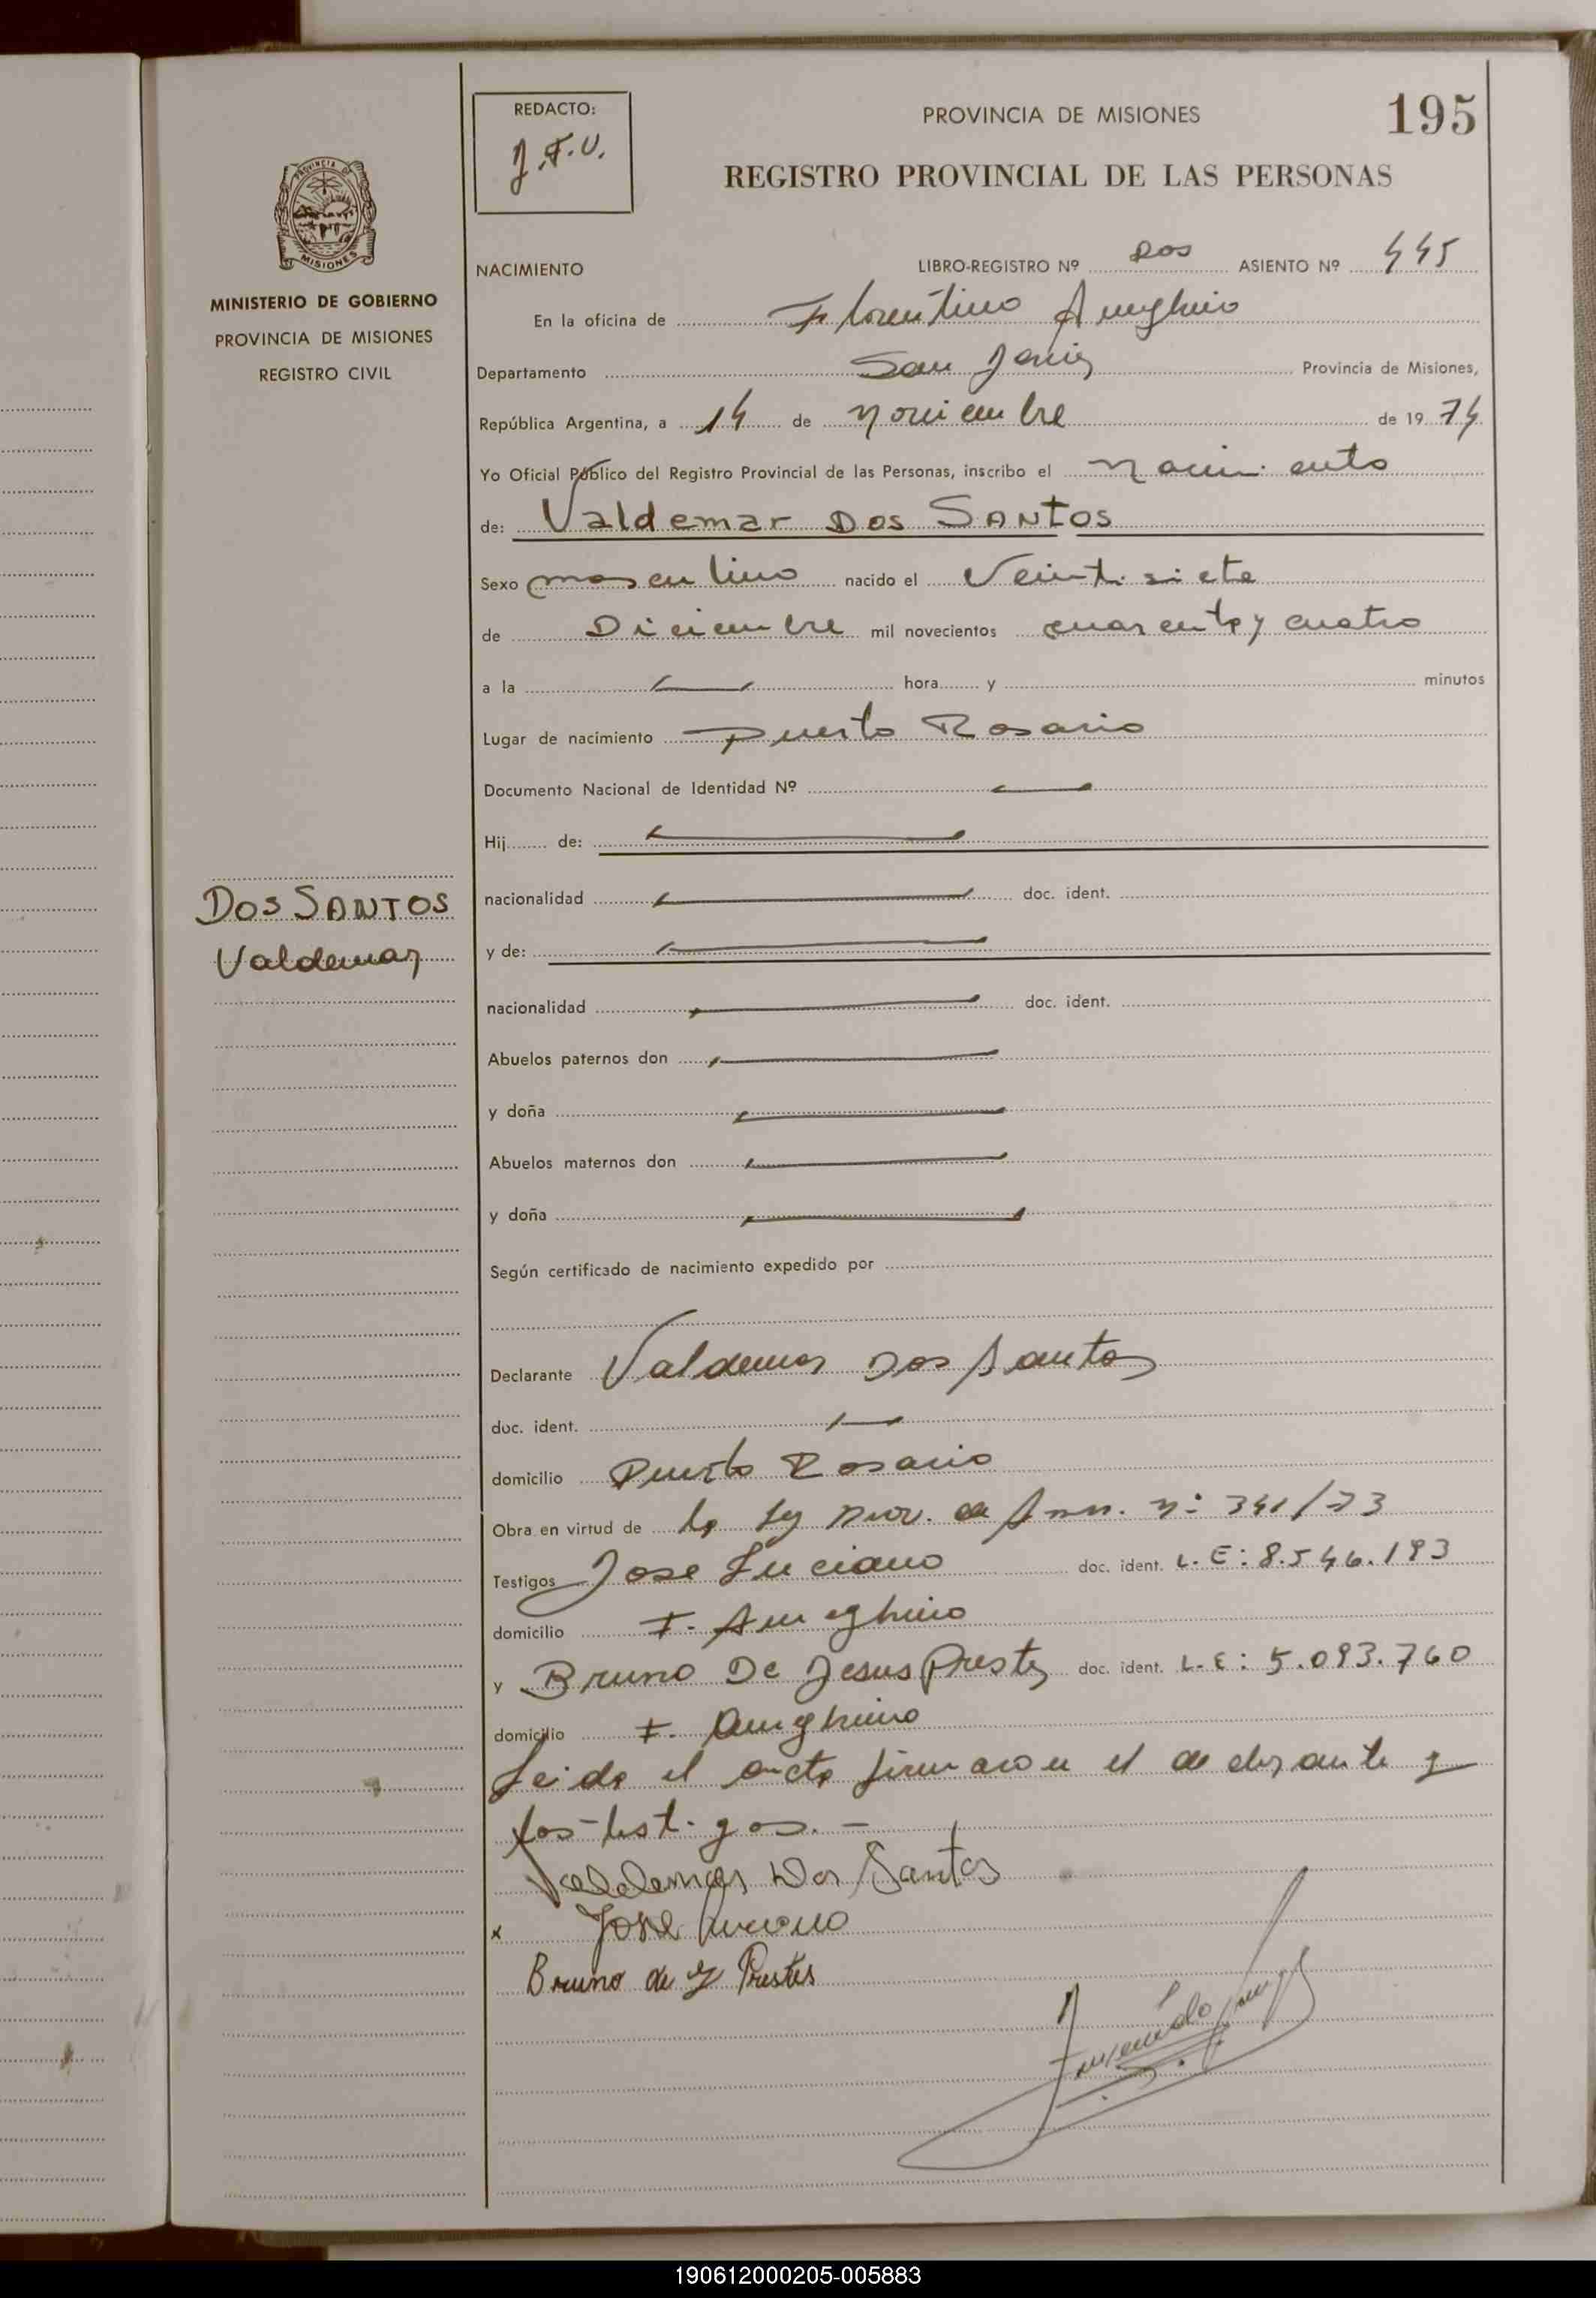 REDACTO:
J.F.V.
PROVINCIA DE MISIONES
195
REGISTRO PROVINCIAL DE LAS PERSONAS
PROVINCIA
MISIONES
MINISTERIO DE GOBIERNO
PROVINCIA DE MISIONES
REGISTRO CIVIL
NACIMIENTO LIBRO-REGISTRO Nº DOS ASIENTO Nº 445
En la oficina de Florentino Ameghino
Departamento San Javier Provincia de Misiones,
República Argentina, a 14 de noviembre de 1974
Yo Oficial Público del Registro Provincial de las Personas, inscribo el nacimiento
de: Valdemar DOS SANTOS
Sexo masculino nacido el Veintisiete
de Diciembre mil novecientos cuarenta y cuatro
a la hora y minutos
Lugar de nacimiento Puerto Rosario
Documento Nacional de Identidad Nº
Hij de:
DOS SANTOS
Valdemar
nacionalidad doc. ident.
y de:
nacionalidad doc. ident.
Abuelos paternos don
y doña
Abuelos maternos don
y doña
Según certificado de nacimiento expedido por
Declarante Valdemar Dos Santos
doc. ident.
domicilio Puerto Rosario
Obra en virtud de la Ley Prov. de Amn. Nº 341/73
Testigos Jose Luciano doc. ident. L.E: 8.546.193
domicilio F. Ameghino
y Bruno De Jesus Prestes doc. ident. L.E: 5.093.760
domicilio F. Ameghino
Leida el acta firmaron el declarante y
los testigos.-
Valdemar Dos Santos
x Jose Luciano
Bruno de J Prestes
190612000205-005883